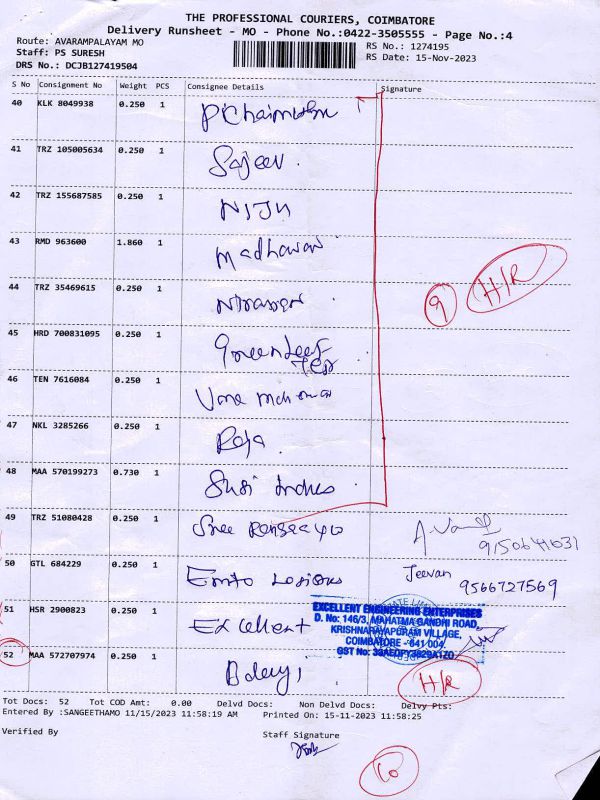 THE PROFESSIONAL COURIERS, COIMBATORE
Delivery Runsheet - MO - Phone No.:0422-3505555 - Page No.:4
Route: AVARAMPALAYAM MO
RS No.: 1274195
Staff: PS SURESH
RS Date: 15-Nov-2023
DRS No.: DCJB127419504
S No Consignment No Weight PCS Consignee Details Signature
40 KLK 8049938 0.250 1
41 TRZ 105005634 0.250 1 Sajeev
42 TRZ 155687585 0.250 1 NIJU
43 RMD 963600 1.860 1 Madhavan
44 TRZ 35469615 0.250 1
9 H/R
45 HRD 700831095 0.250 1 Greenleef
46 TEN 7616084 0.250 1
47 NKL 3285266 0.250 1 Raja
48 MAA 570199273 0.730 1 Susi
49 TRZ 51080428 0.250 1 Sree
50 GTL 684229 0.250 1 Jeevan 9566727569
51 HSR 2900823 0.250 1 Excellent
EXCELLENT ENGINEERING ENTERPRISES
D. No: 146/3, MAHATMA GANDHI ROAD,
KRISHNARAYAPURAM VILLAGE,
COIMBATORE - 641 004.
GST No:
52 MAA 572707974 0.250 1
H/R
Tot Docs: 52 Tot COD Amt: 0.00 Delvd Docs: Non Delvd Docs: Delvy Pts:
Entered By :SANGEETHAMO 11/15/2023 11:58:19 AM Printed On: 15-11-2023 11:58:25
Verified By Staff Signature